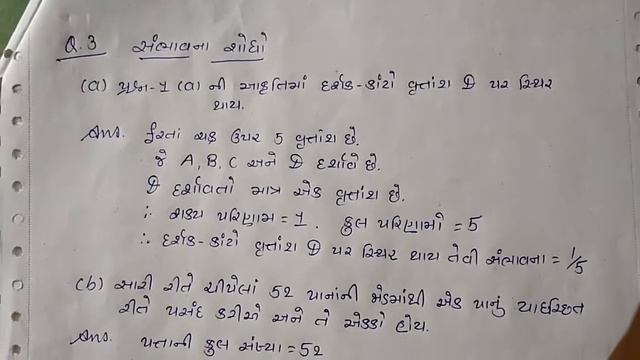 Q.3 સંભાવના શોધો
(a) પ્રશ્ન-1 (a) ની આકૃતિમાં દર્શક-કાંટો વૃત્તાંશ D પર સ્થિર
થાય.
Ans. ફરતાં ચક્ર ઉપર 5 વૃત્તાંશ છે.
જે A, B, C અને D દર્શાવે છે.
D દર્શાવતો માત્ર એક વૃત્તાંશ છે.
∴ શક્ય પરિણામ = 1. કુલ પરિણામો = 5
∴ દર્શક-કાંટો વૃત્તાંશ D પર સ્થિર થાય તેવી સંભાવના = 1/5
(b) સારી રીતે ચીપેલાં 52 પાનાંની થોકડીમાંથી એક પાનું યાદચ્છિક
રીતે પસંદ કરીએ અને તે એક્કો હોય.
Ans. પત્તાની કુલ સંખ્યા = 52